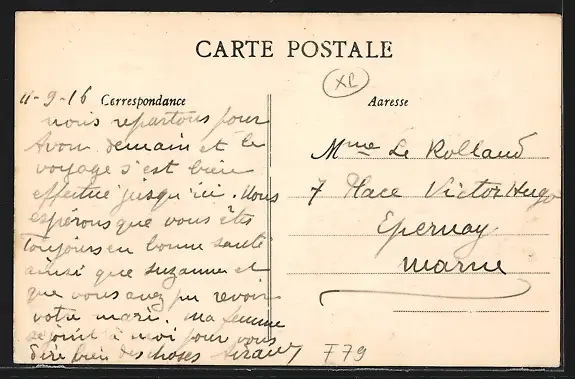 CARTE POSTALE
XR
11-9-16 Correspondance
Adresse
nous repartons pour
Avon demain et le
voyage s'est bien
effectué jusqu'ici. Nous
espérons que vous êtes
toujours en bonne santé
ainsi que Suzanne et
que vous avez pu revoir
votre mari. Ma femme
se joint à moi pour vous
dire bien des choses
Mme Le Rolland
7 Place Victor Hugo
Epernay
Marne
F79